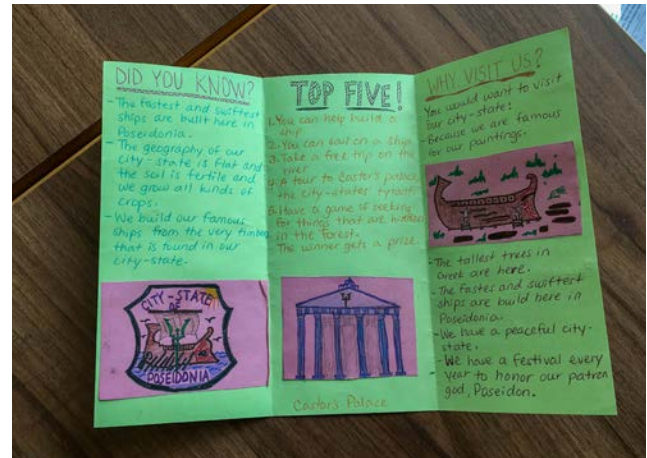 DID YOU KNOW?
- The fastest and swiftest
ships are built here in
Poseidonia.
- The geography of our
city-state is flat and
the soil is fertile and
we grow all kinds of
crops.
- We build our famous
ships from the very timber
that is found in our
city-state.
CITY-STATE
OF
POSEIDONIA
TOP FIVE!
1. You can help build a
ship
2. You can sail on a ship
3. Take a free trip on the
river
4. A tour to Castor's palace,
the city-states' tyrant.
5. Have a game if seeking
for things that are hidden
in the forest.
The winner gets a prize
Castor's Palace
WHY VISIT US?
You would want to visit
our city-state:
- Because we are famous
for our paintings.
- The tallest trees in
Greek are here.
- The fastes and swiftest
ships are build here in
Poseidonia.
- We have a peaceful city-
state.
- We have a festival every
year to honor our patron
god, Poseidon.